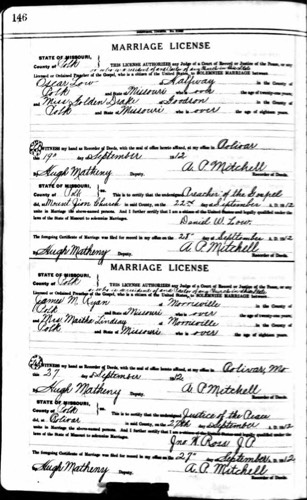 146
MARRIAGE LICENSE
STATE OF MISSOURI,
County of Polk
THIS LICENSE AUTHORIZES any Judge of a Court of Record or Justice of the Peace, or any
Licensed or Ordained Preacher of the Gospel, who is a citizen of the United States, to SOLEMNIZE MARRIAGE between
Oscar Low Halfway
Polk and State of Missouri who is over the age of twenty-one years,
and Miss Golden Drake
Polk and State of Missouri who is over the age of eighteen years.
WITNESS my hand as Recorder, with the seal of office hereto affixed, at my office in Bolivar
this 19th day September 1912
By Hugh Matheny A. P. Mitchell
Recorder of Deeds
STATE OF MISSOURI,
County of Polk
This is to certify that the undersigned Preacher of the Gospel
did, at Mount Zion Church in said County, on the 22nd day of September A. D. 1912
unite in marriage the above-named persons. And I further certify that I am a citizen of the United States and legally qualified under the
laws of the State of Missouri to solemnize Marriages.
Daniel W. Low
The foregoing Certificate of Marriage was filed for record in my office on the 25th day of September A. D. 1912
By Hugh Matheny A. P. Mitchell
MARRIAGE LICENSE
STATE OF MISSOURI,
County of Polk
THIS LICENSE AUTHORIZES any Judge of a Court of Record or Justice of the Peace, or any
Licensed or Ordained Preacher of the Gospel, who is a citizen of the United States, to SOLEMNIZE MARRIAGE between
James M. Ryan Morrisville
Polk and State of Missouri who is over the age of twenty-one years,
and Mrs Martha Lindsay Morrisville
Polk and State of Missouri who is over the age of eighteen years.
WITNESS my hand as Recorder, with the seal of office hereto affixed, at my office in Bolivar, Mo
this 27 day September 1912
By Hugh Matheny A. P. Mitchell
STATE OF MISSOURI,
County of Polk
This is to certify that the undersigned Justice of the Peace
did, at Bolivar in said County, on the 27th day of September A. D. 1912
unite in marriage the above-named persons. And I further certify that I am a citizen of the United States and legally qualified under the
laws of the State of Missouri to solemnize Marriages.
Jno. R. Ross J P
The foregoing Certificate of Marriage was filed for record in my office on the 27th day of September A. D. 1912
By Hugh Matheny A. P. Mitchell